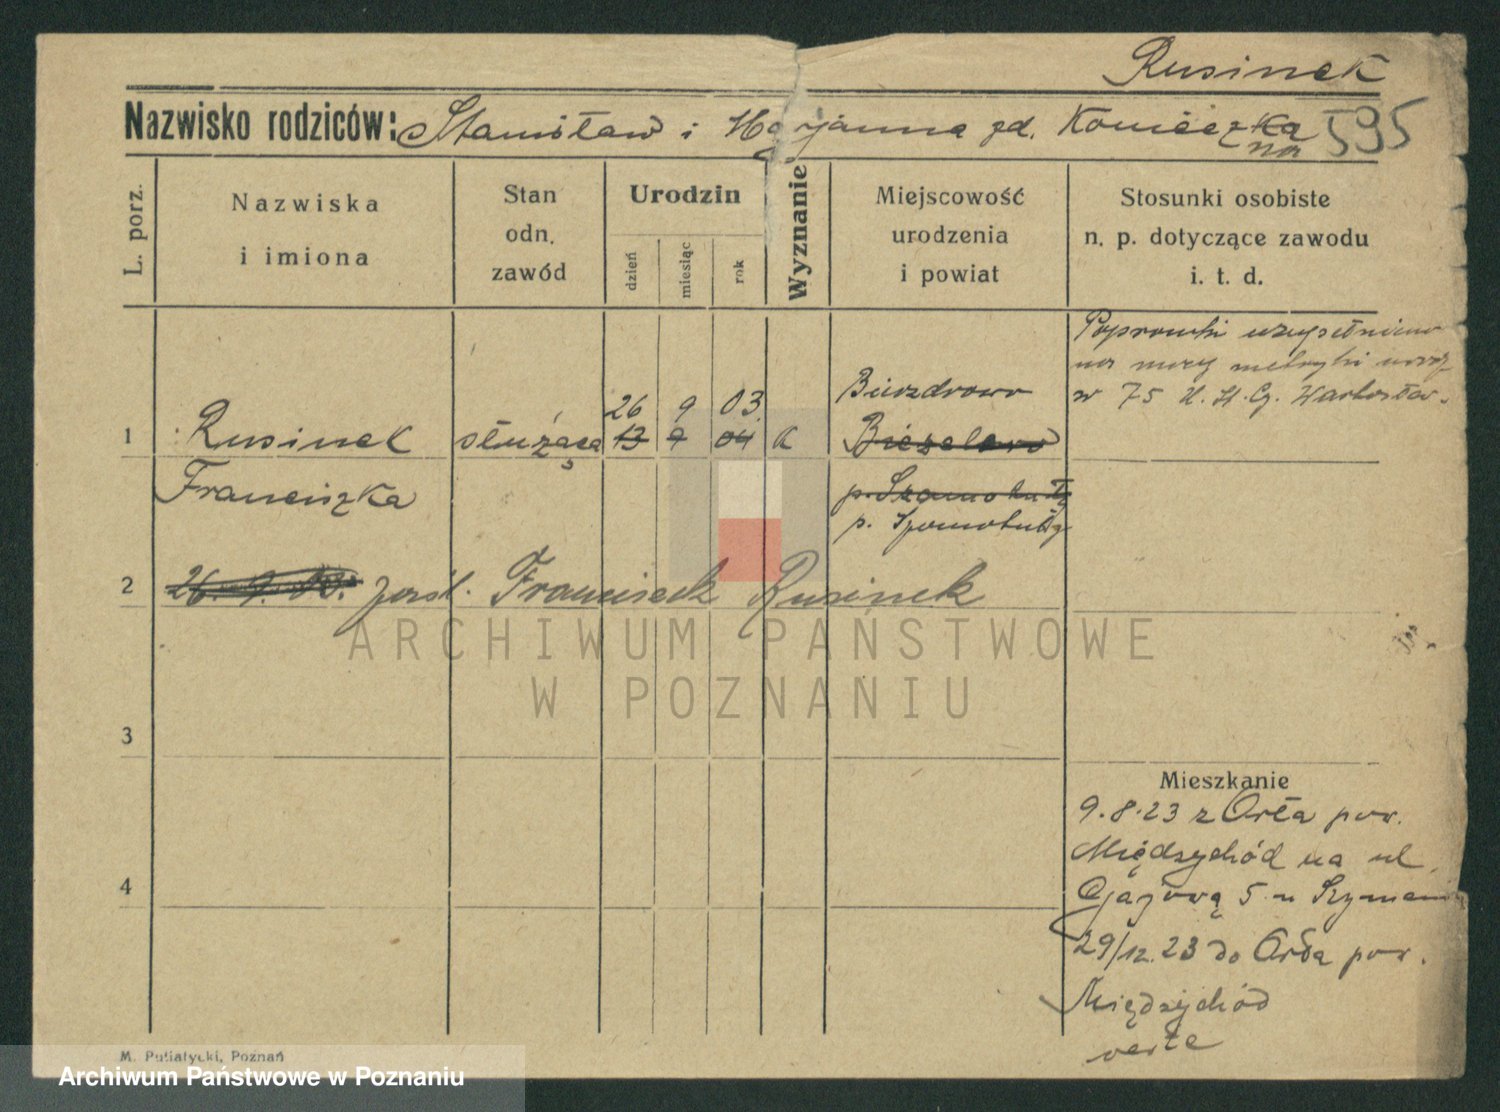 Rusinek
Nazwisko rodziców: Stanisław i Marjanna zd. Konieczka 595
na
L. porz.
Nazwiska
i imiona
Stan
odn.
zawód
Urodzin
dzień
miesiąc
rok
Wyznanie
Miejscowość
urodzenia
i powiat
Stosunki osobiste
n. p. dotyczące zawodu
i. t. d.
uzupełniono
na mocy metryki urodz
w 75 Wartosław.
26 9 03. Biezdrowo
1 Rusinek służąca 13 9 04 K
Franciszka p. Szamotuły
p. Szamotuły
2 26. 9. 03. zaśl. Franciszek Rusinek
ARCHIWUM PAŃSTWOWE
W POZNANIU
3
Mieszkanie
9.8.23 z Orła pow.
Międzychód na ul.
4
5 u Szyman
29/12.23 do Orła pow.
Międzychód
verte
M. Putiatycki, Poznań
Archiwum Państwowe w Poznaniu